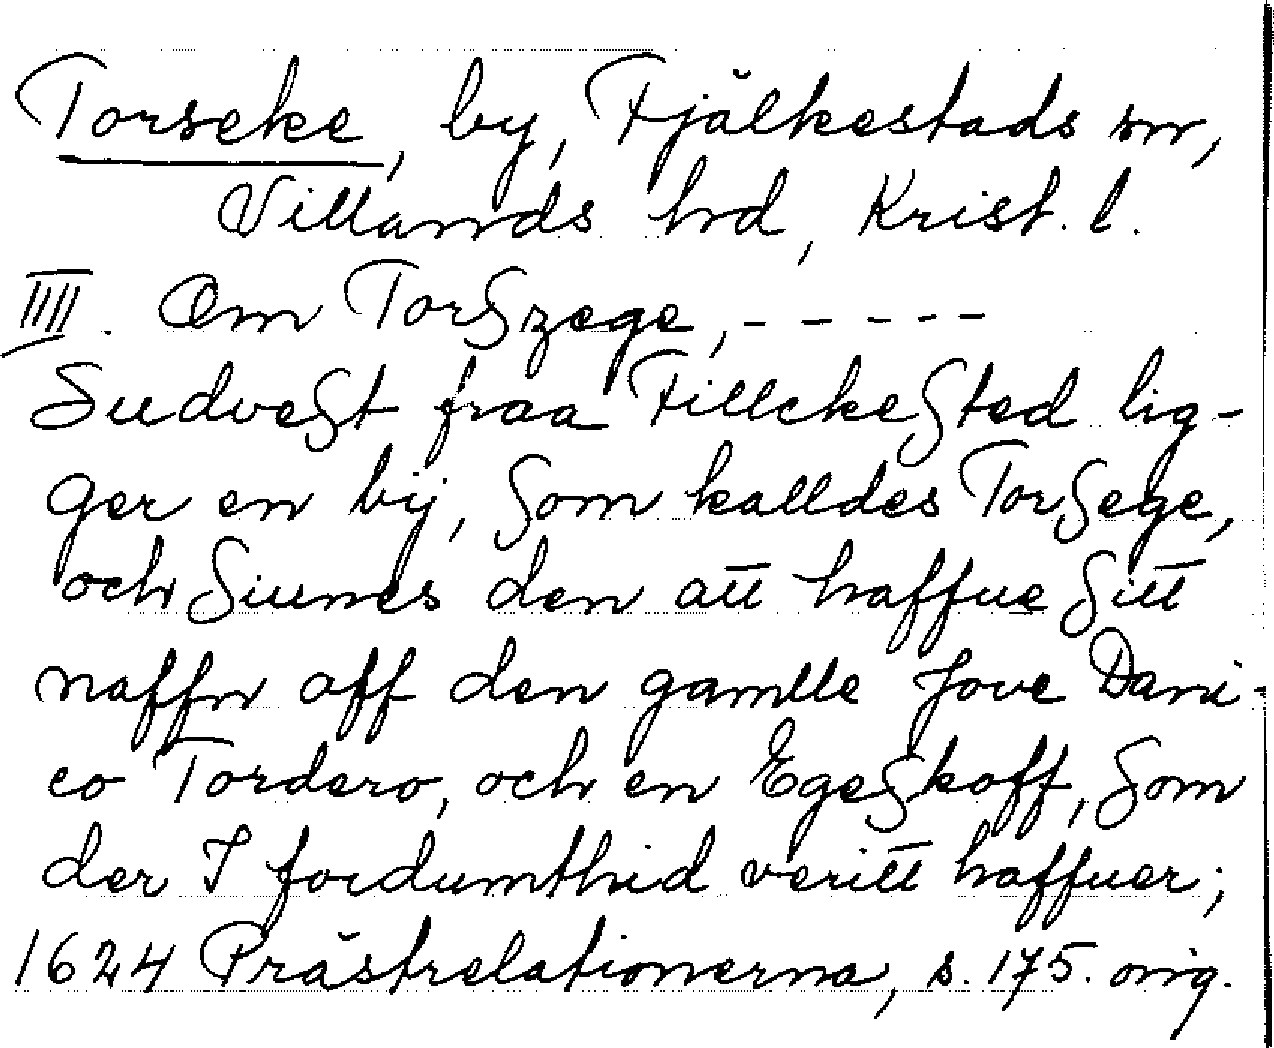 Torseke, by, Fjälkestads sn,
Villands hd, Krist. l.
IIII. Om Torszege, - - - - -
Sudvest fraa Fillckested lig-
ger en bÿ, som kalldes Torsege,
och siunes den att haffue sitt
naffn aff den gamlle Jove Dani-
co Tordero, och en Egeskoff, som
der I fordumthid veritt haffuer;
1624 Prästrelationerna, s. 175. orig.